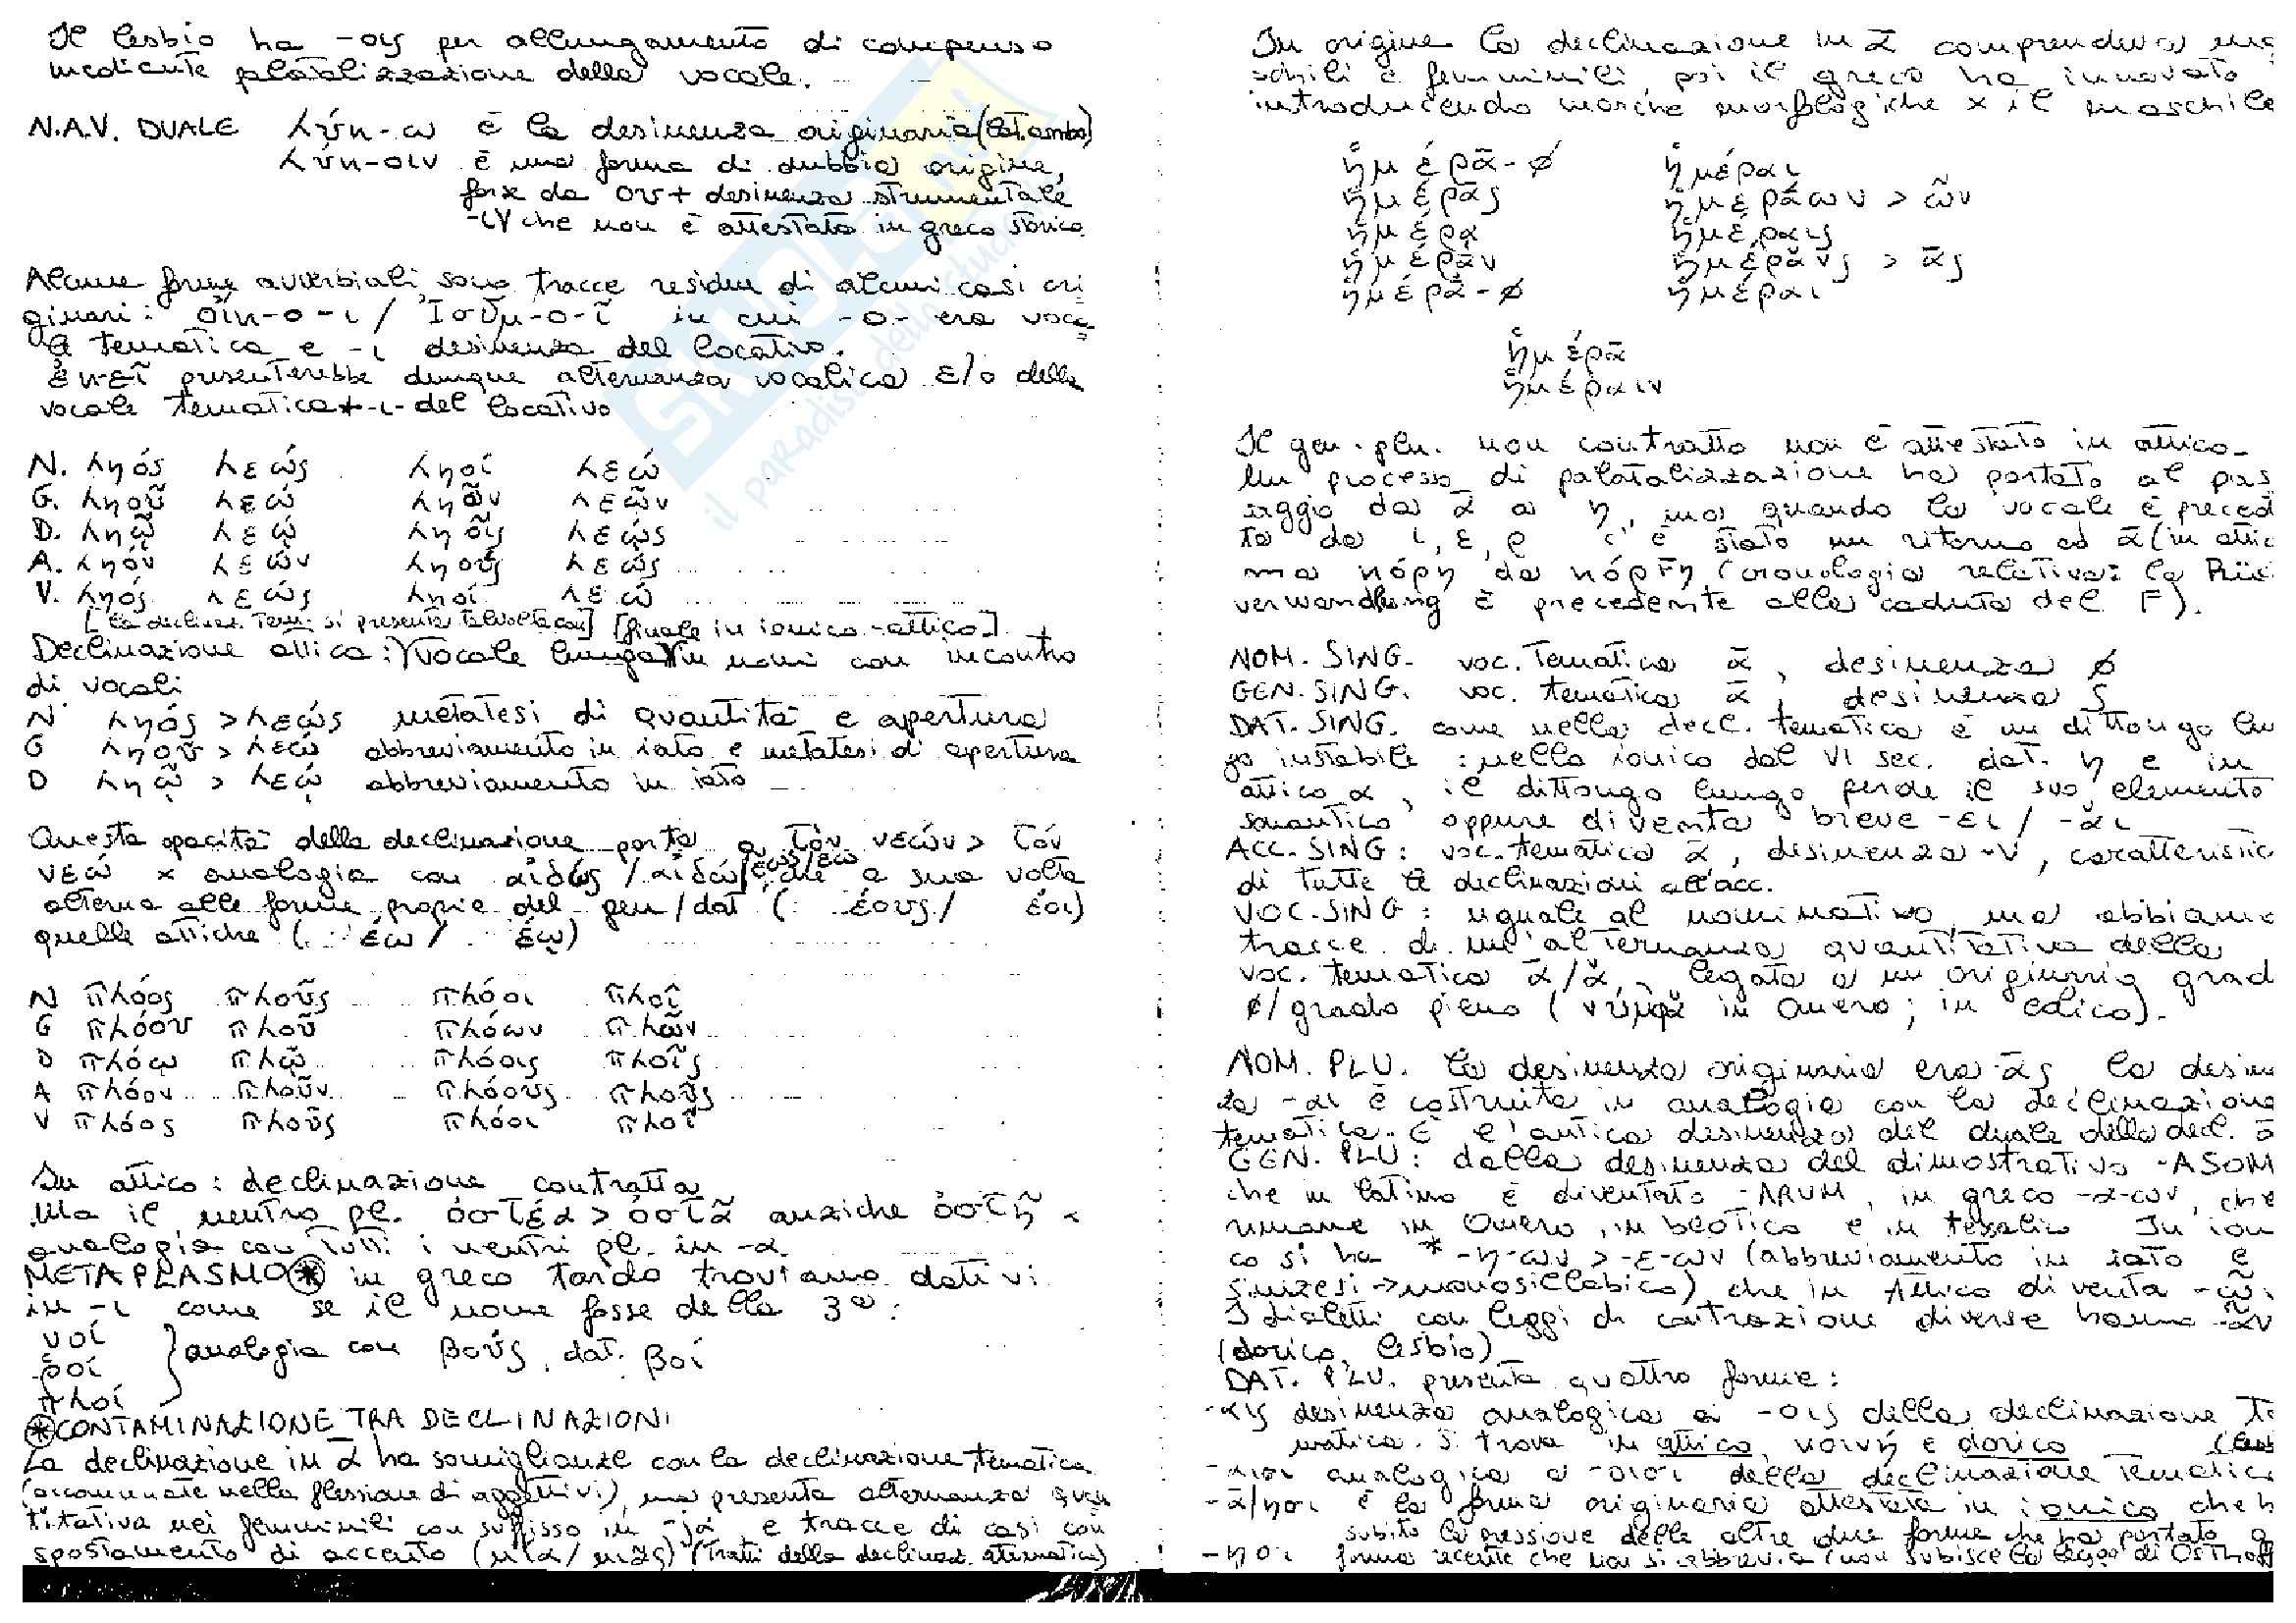 Il lesbio ha -οις per allungamento di compenso
mediante palatalizzazione della vocale.
N.A.V. DUALE λύκ-ω è la desinenza originaria (lat. ambo)
λύκ-οιν è una forma di dubbia origine,
forse da οι + desinenza strumentale
-ιν che non è attestato in greco storico
Alcune forme avverbiali sono tracce residue di alcuni casi ori
ginari: οἴκ-ο-ι / Ἰσθμ-ο-ῖ in cui -ο- era voca
le tematica e -ι desinenza del locativo.
ἐκεῖ presenterebbe dunque alternanza vocalica ε/ο della
vocale tematica + -ι- del locativo
N. ληός λεώς ληοί λεώ
G. ληοῦ λεώ ληῶν λεῶν
D. ληῷ λεῴ ληοῖς λεῴς
A. ληόν λεών ληούς λεώς
V. ληός λεώς ληοί λεώ
[la declinaz. tem. si presenta talvolta con] [finale in ionico-attico]
Declinazione attica: vocale lunga in nomi con incontro
di vocali
N ληός > λεώς metatesi di quantità e apertura
G ληοῦ > λεώ abbreviamento in iato e metatesi di apertura
D ληῷ > λεῴ abbreviamento in iato
Questa opacità della declinazione porta a τὸν νεών > τὸν
νεώ x analogia con αἰδώς / αἰδώ che a sua volta
alterna alle forme proprie del gen/dat (: έους / έοι)
quelle attiche (: έω / έῳ)
N πλόος πλοῦς πλόοι πλοῖ
G πλόου πλοῦ πλόων πλῶν
D πλόῳ πλῷ πλόοις πλοῖς
A πλόον πλοῦν πλόους πλοῦς
V πλόος πλοῦς πλόοι πλοῖ
In attico: declinazione contratta
Ma il neutro pl. ὀστέα > ὀστᾶ anziché ὀστῆ x
analogia con tutti i neutri pl. in -α.
METAPLASMO⊛ in greco tardo troviamo dativi
in -ι come se il nome fosse della 3ª:
νοί
ῥοί } analogia con βοῦς, dat. βοί
πλοί
⊛CONTAMINAZIONE TRA DECLINAZIONI
La declinazione in ᾱ ha somiglianze con la declinazione tematica
(accomunate nella flessione di aggettivi), ma presenta alternanza quan
titativa nei femminili con suffisso in -jα e tracce di casi con
spostamento di accento (μία/μιᾶς) (tratti della declinaz. atematica)
In origine la declinazione in ᾱ comprendeva ma
schili e femminili poi il greco ha innovato
introducendo marche morfologiche x il maschile
ἡμέρᾱ-ø ἡμέραι
ἡμέρᾱς ἡμεράων > ῶν
ἡμέρᾳ ἡμέραις
ἡμέρᾱν ἡμέρᾰνς > ᾱς
ἡμέρᾱ-ø ἡμέραι
ἡμέρᾱ
ἡμέραιν
Il gen. plu. non contratto non è attestato in attico.
Un processo di palatalizzazione ha portato al pas
saggio da ᾱ a η, ma quando la vocale è preced
ta da ι, ε, ρ c'è stato un ritorno ad ᾱ (in attic
ma κόρη da κόρϝη (cronologia relativa: la Rück
verwandlung è precedente alla caduta del F).
NOM. SING. voc. tematica ᾱ, desinenza ø
GEN. SING. voc. tematica ᾱ, desinenza ς
DAT. SING. come nella decl. tematica è un dittongo lu
go instabile: nello ionico dal VI sec. dat. η e in
attico α, il dittongo lungo perde il suo elemento
sonantico oppure diventa breve -ει / -ᾰι
ACC. SING: voc. tematica ᾱ, desinenza -ν, caratteristic
di tutte le declinazioni all'acc.
VOC. SING: uguale al nominativo, ma abbiamo
tracce di un'alternanza quantitativa della
voc. tematica ᾱ/ᾰ, legata a un originario grad
ø/grado pieno (νύμφᾰ in Omero; in eolico).
NOM. PLU. la desinenza originaria era -ᾱς la desin
za -αι è costruita in analogia con la declinazione
tematica. È l'antica desinenza del duale della decl. ᾱ
GEN. PLU: dalla desinenza del dimostrativo -ASOM
che in latino è diventato -ARUM, in greco -α-ων, che
rimane in Omero, in beotico e in tessalico In ion
co si ha *-η-ων > -ε-ων (abbreviamento in iato e
sinizesi → monosillabico) che in Attico diventa -ῶν
I dialetti con leggi di contrazione diverse hanno -ᾶν
(dorico, lesbio)
DAT. PLU. presenta quattro forme:
-αις desinenza analogica a -οις della declinazione te
matica. Si trova in attico, κοινή e dorico (lesb
-αισι analogica a -οισι della declinazione tematica
-ᾱ/ησι è la forma originaria attestata in ionico che h
subito la pressione delle altre due forme che ha portato a
-ησι forma recente che non si abbrevia (non subisce la legge di Osthoff